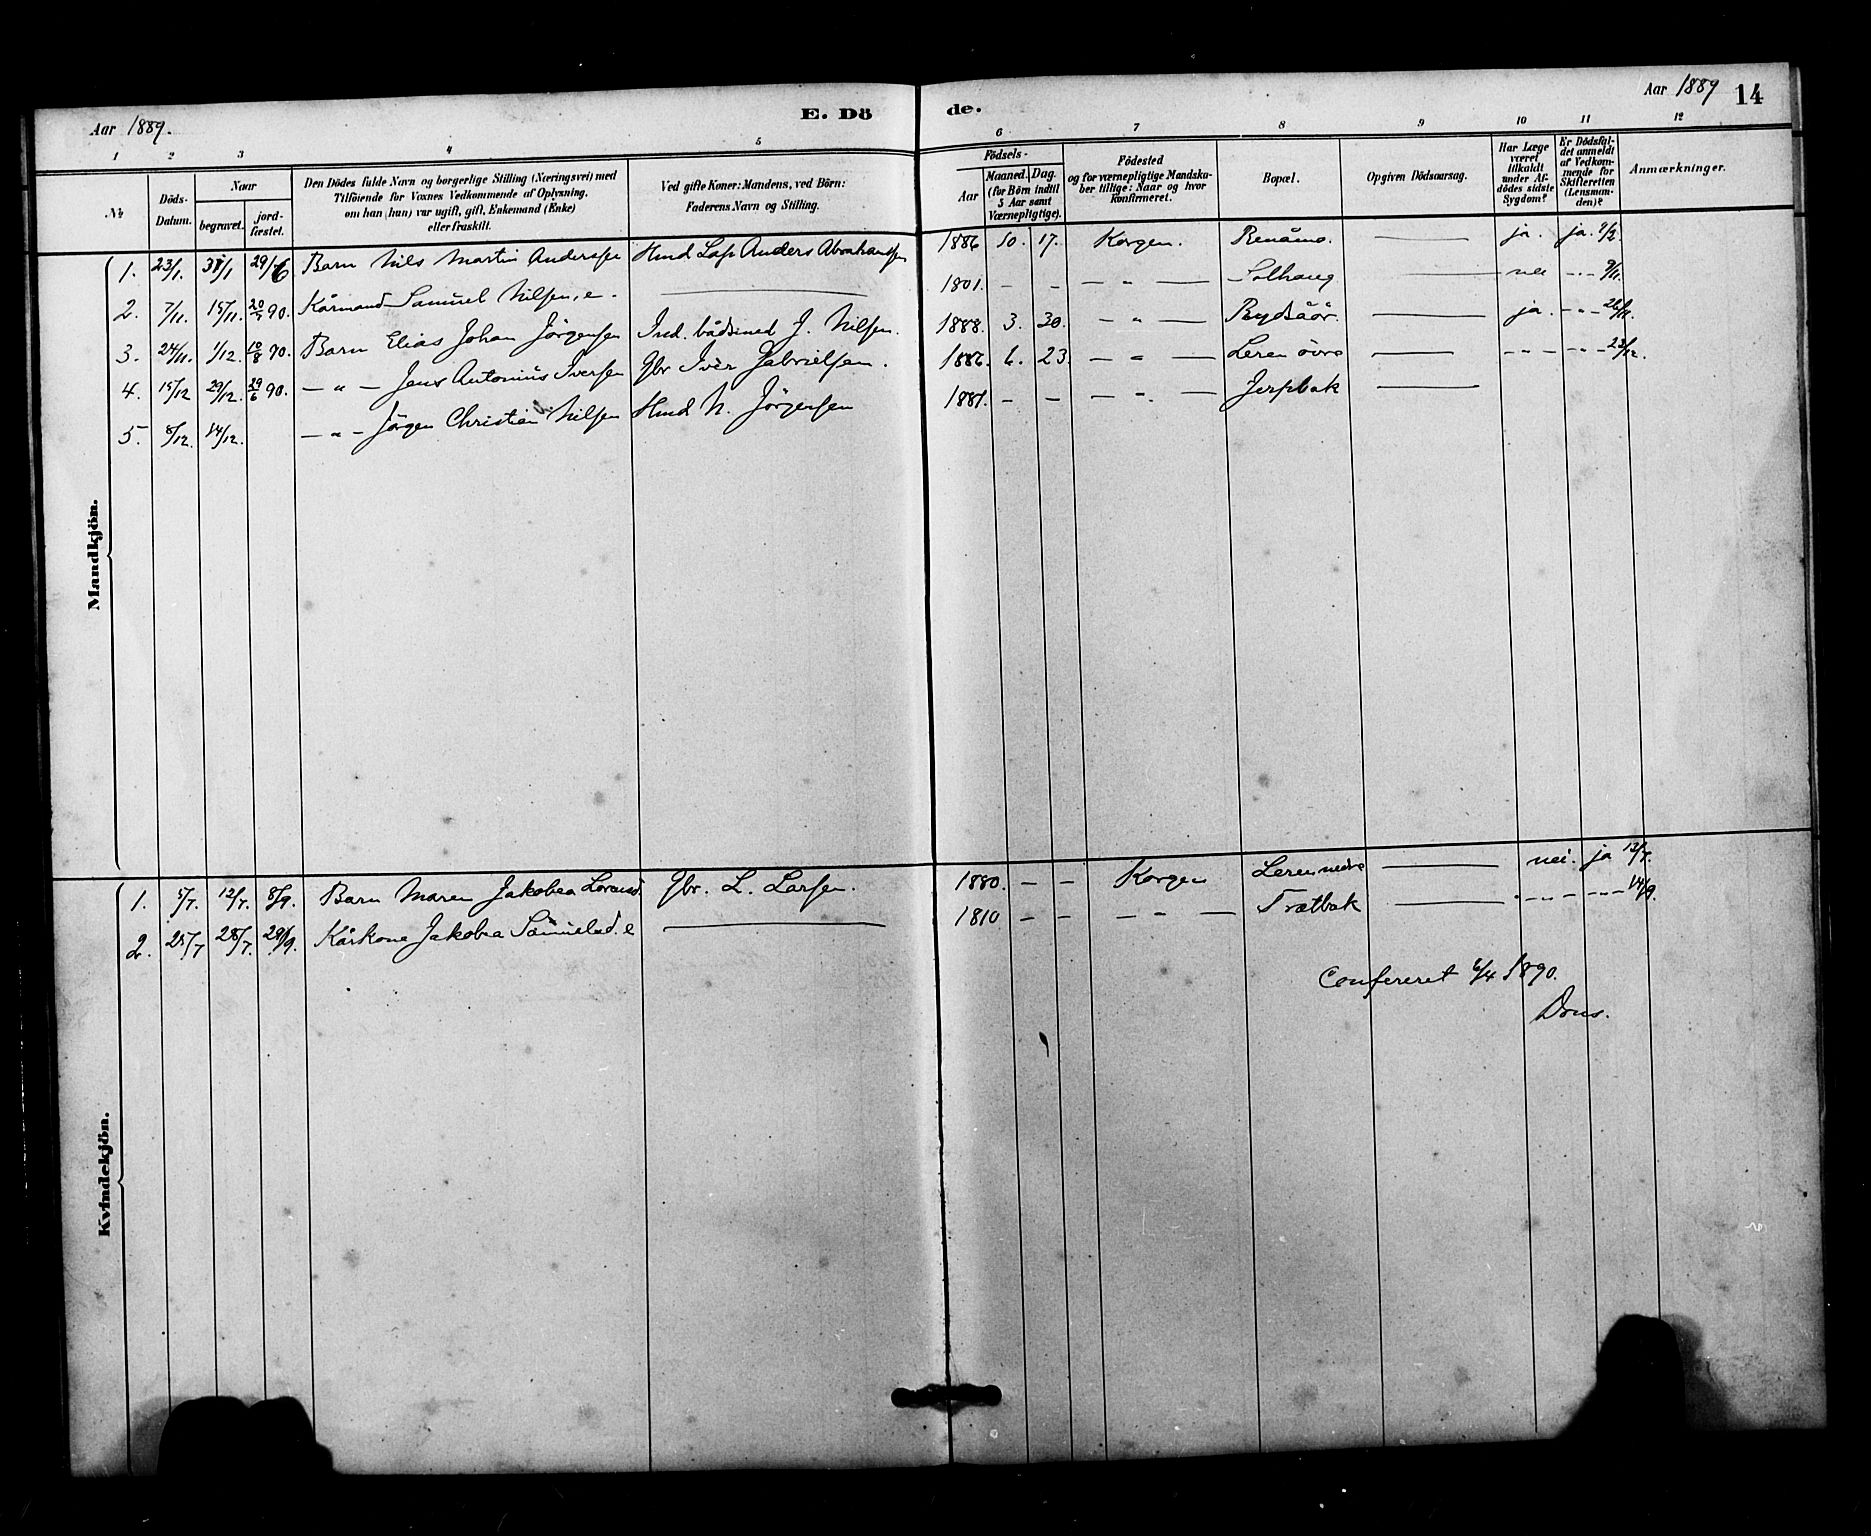 Aar 1889.
E. Dö
de.
Aar 1889
14
1 2 3 4 5 6 7 8 9 10 11 12
№
Döds-
Datum.
Naar
begravet.
jord-
fæstet.
Den Dödes fulde Navn og borgerlige Stilling (Næringsvei) med
Tilföiende for Voxnes Vedkommende af Oplysning,
om han (hun) var ugift, gift, Enkemand (Enke)
eller fraskilt.
Ved gifte Koner: Mandens, ved Börn:
Faderens Navn og Stilling.
Födsels-
Aar
Maaned. Dag.
(for Börn indtil
5 Aar samt
Værnepligtige).
Födested
og for værnepligtige Mandska-
ber tillige: Naar og hvor
konfirmeret.
Bopæl.
Opgiven Dödsaarsag.
Har Læge
været
tilkaldt
under Af-
dödes sidste
Sygdom?
Er Dödsfal-
det anmeldt
af Vedkom-
mende for
Skifteretten
(Lensman-
den)?
Anmærkninger.
Mandkjön.
1. 23/1. 31/1 29/6 Barn Nils Martin Andersen Hmd Lap Anders Abrahamsen 1886 10. 17. Korgen. Renåmo. — ja. ja. 9/2.
2. 7/11. 15/11. 20/7 90. Kårmand Samuel Nilsen, e. — 1801. — — — " — Solhaug — nei - " - 9/11.
3. 24/11. 1/12. 10/8 90. Barn Elias Johan Jörgensen Ind. bådsmed J. Nilsen. 1888. 3. 30. — " — Rydsåör. — ja. - " - 26/11.
4. 15/12 29/12. 29/6 90. — " — Jens Antonius Iversen Gbr Iver Gabrielsen. 1886. 6. 23. — " — Leren övre — - " - - " - 23/12.
5. 8/12. 14/12. — " — Jörgen Christian Nilsen Hmd N. Jörgensen 1881. — — — " — Jerpbak —
Kvindekjön.
1. 5/7. 12/7. 8/9. Barn Maren Jakobea Lorensd. Gbr. L. Larsen. 1880. — — Korgen Leren nedre — nei. ja 12/7.
2. 25/7 28/7. 28/9. Kårkone Jakobea Samuelsd. e — 1810 — — — " — Trætbak — - " - - " - 14/9.
Confereret 6/4 1890.
Dons.